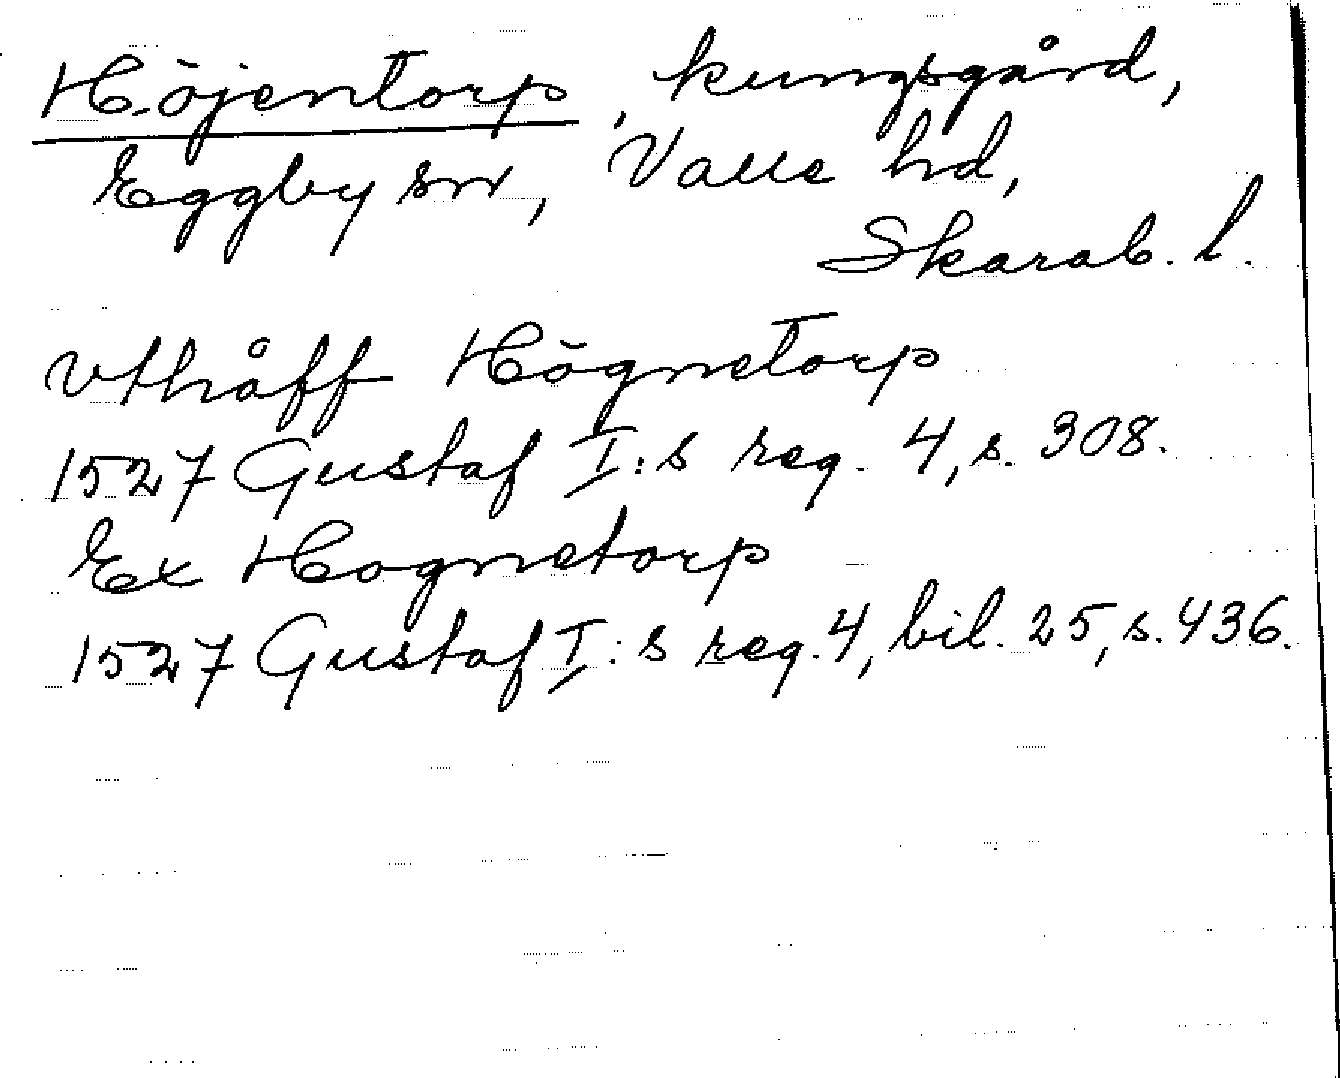 Höjentorp, kungsgård,
Eggby sn, Valle hd,
Skarab. l.
vthåff Högnetorp
1527 Gustaf I:s reg. 4, s. 308.
Ex Hognetorp
1527 Gustaf I:s reg. 4, bil. 25, s. 436.